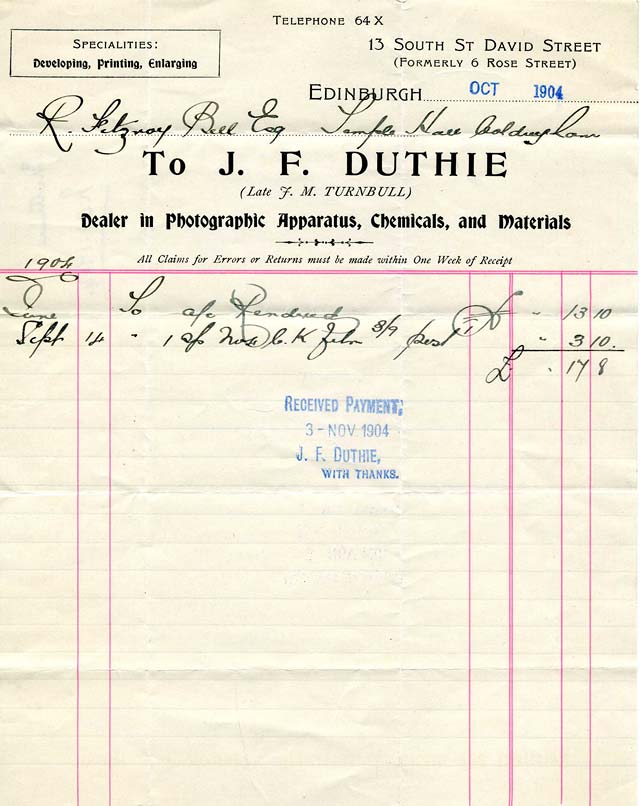 TELEPHONE 64 X
SPECIALITIES:
Developing, Printing, Enlarging
13 SOUTH ST DAVID STREET
(FORMERLY 6 ROSE STREET)
EDINBURGH OCT 1904
R. Fitzroy Bell Esq Temple Hall Coldingham
To J. F. DUTHIE
(Late J. M. TURNBULL)
Dealer in Photographic Apparatus, Chemicals, and Materials
All Claims for Errors or Returns must be made within One Week of Receipt
1904
June To a/c Rendered £ " 13 10
Sept 14 " 1 K Film 3/9 post 1 " 3 10.
£ . 17 8
RECEIVED PAYMENT,
3 - NOV 1904
J. F. DUTHIE,
WITH THANKS.